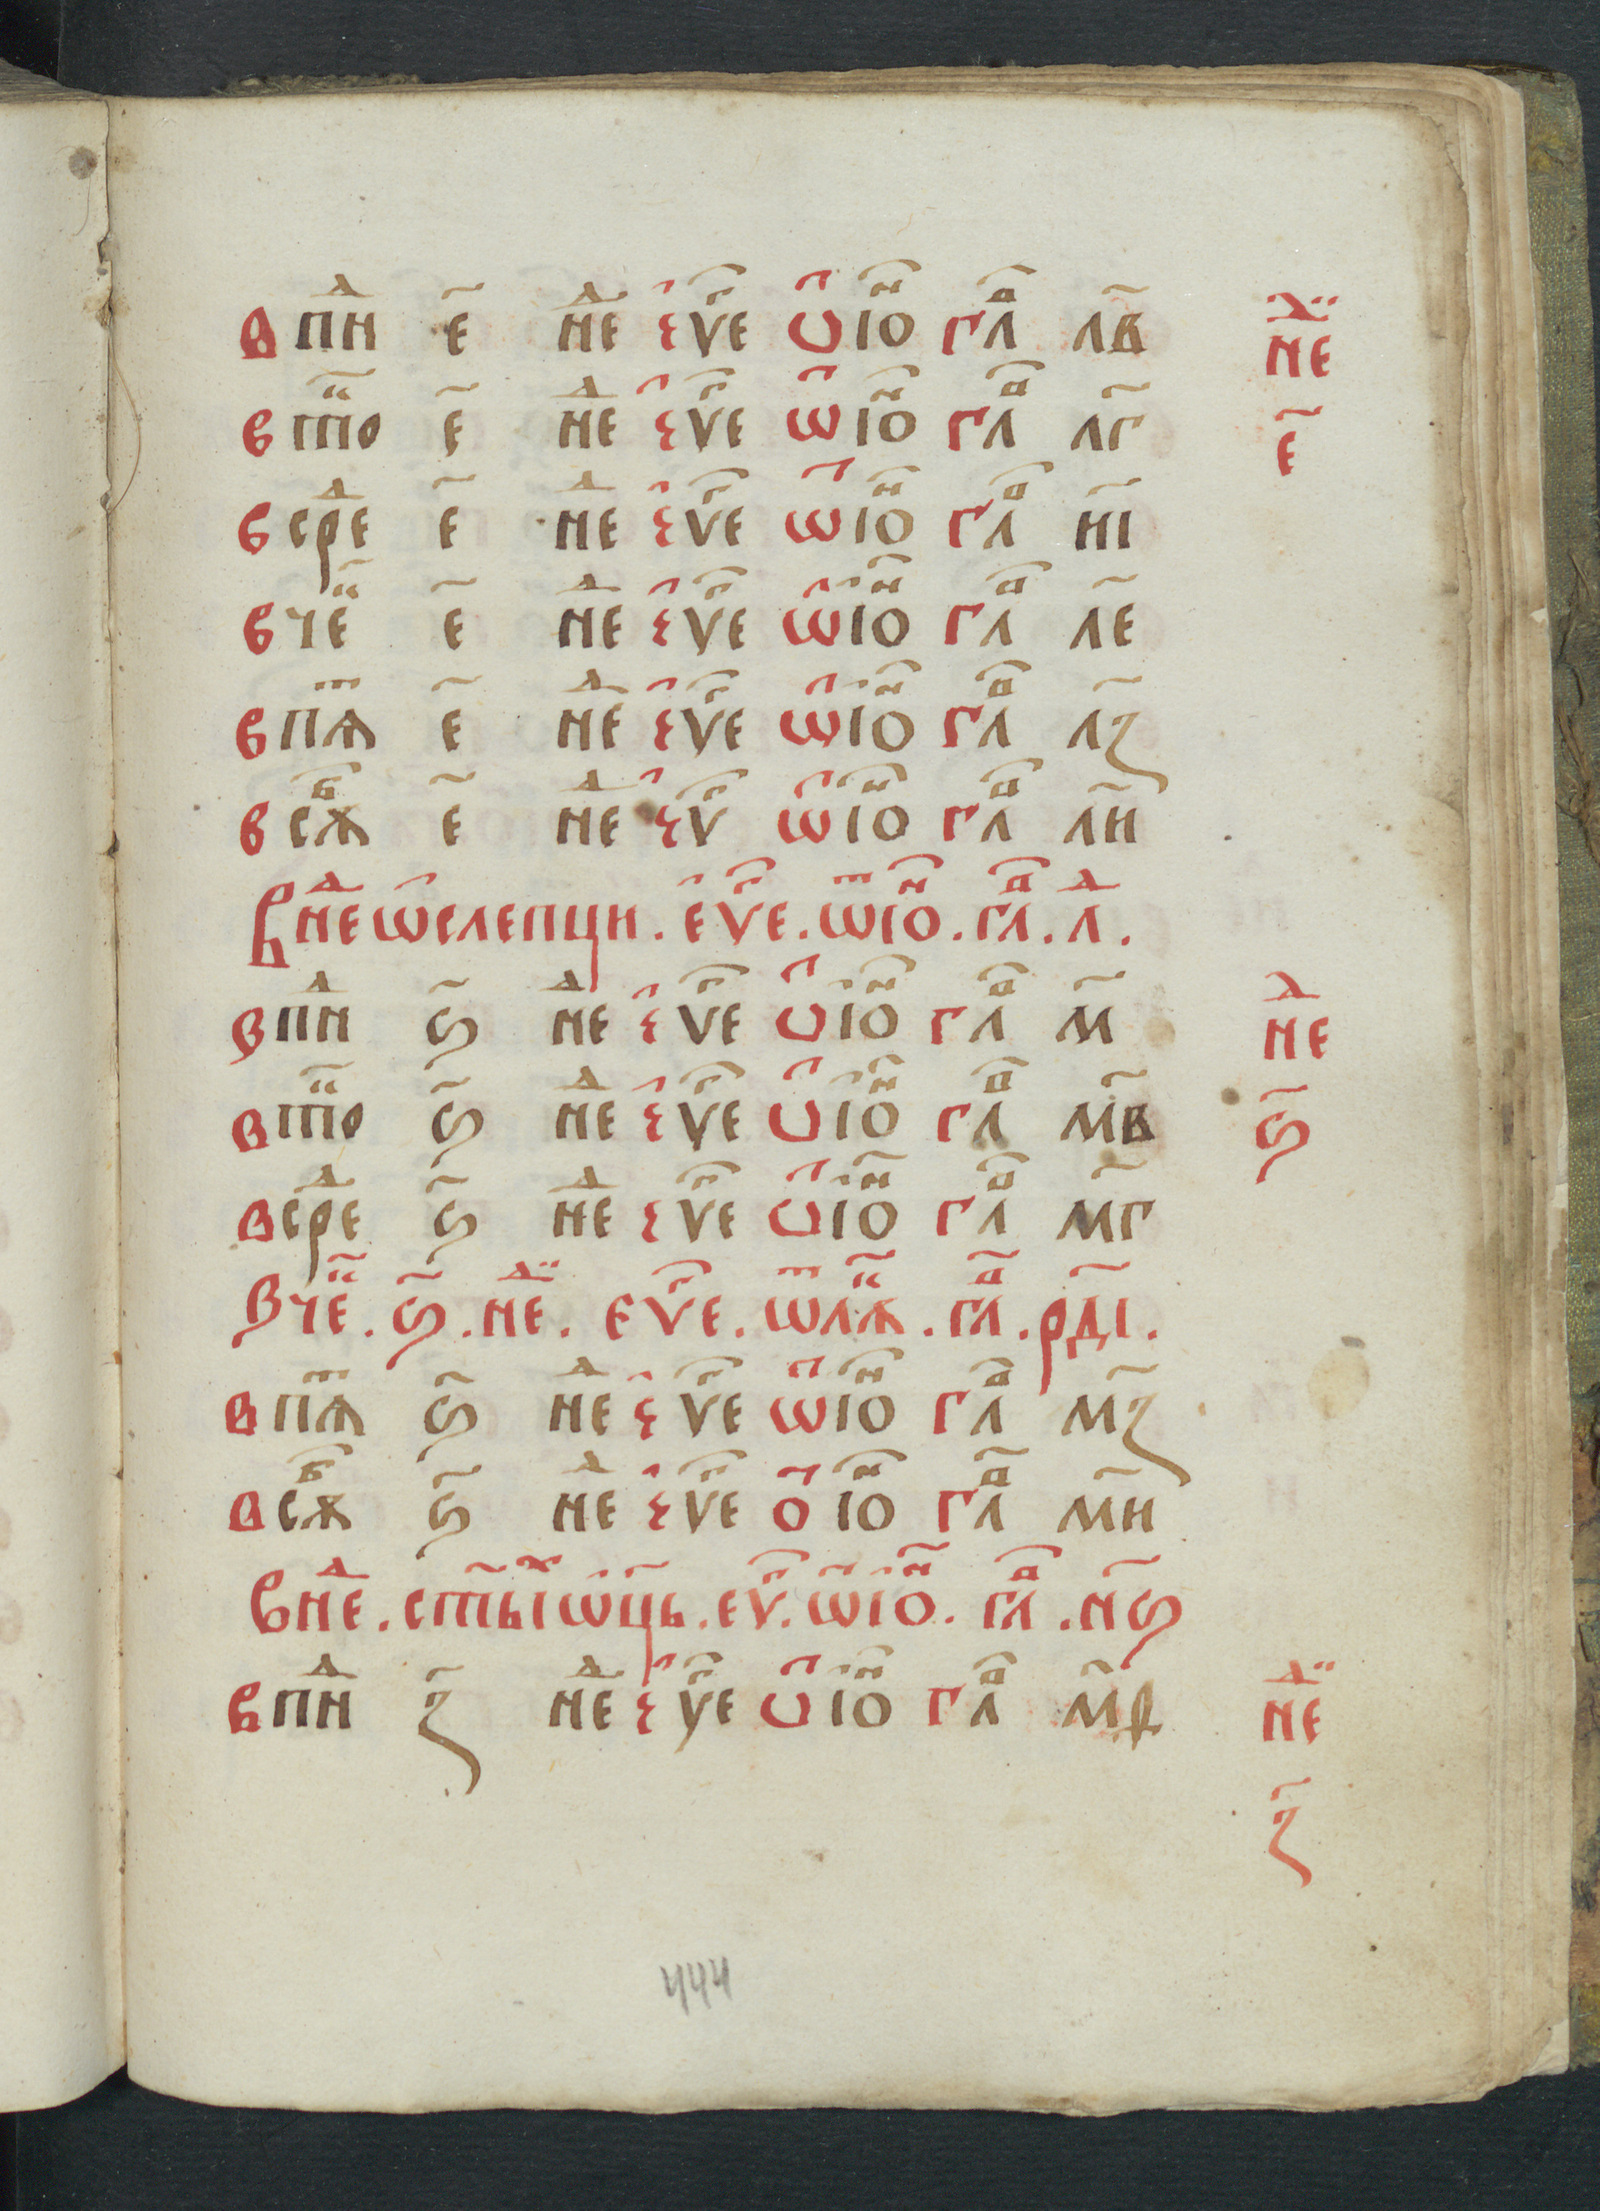 в пнⷣ е҃ неⷣ є҆ѵⷢ҇е ѡⷮ іоⷩ гл҃аⷡ лв҃ неⷣ
в втоⷬ е҃ неⷣ є҆ѵⷢ҇е ѡⷮ іоⷩ глаⷡ лг҃ е҃
в среⷣ е҃ неⷣ є҆ѵⷢ҇е ѡⷮ іоⷩ глаⷡ ні҃
в чеⷦ҇ е҃ неⷣ є҆ѵⷢ҇е ѡⷮ іоⷩ глаⷡ ле҃
в пѧⷮ е҃ неⷣ є҆ѵⷢ҇е ѡⷮ іоⷩ глаⷡ лз҃
в сѫⷠ е҃ неⷣ є҆ѵⷢ҇ ѡⷮ іоⷩ глаⷡ лн҃
В неⷣ ѡ слепци . еѵⷢ҇е . ѡⷮ іоⷩ . глаⷡ . лд҃ .
в пнⷣ ѕ҃ неⷣ є҆ѵⷢ҇е ѡⷮ іоⷩ глаⷡ м҃ неⷣ
в втоⷬ ѕ҃ неⷣ є҆ѵⷢ҇е ѡⷮ іоⷩ глаⷡ мв҃ ѕ҃
в среⷣ ѕ҃ неⷣ є҆ѵⷢ҇е ѡⷮ іоⷩ глаⷡ мг҃
В чеⷦ҇ . ѕ҃ . неⷣ . еѵⷢ҇е . ѡⷮ лѫⷦ . глаⷡ . рді҃ .
в пѧⷮ ѕ҃ неⷣ є҆ѵⷢ҇е ѡⷮ іоⷩ глаⷡ мз҃
в сѫⷠ ѕ҃ неⷣ є҆ѵⷢ҇е ѡⷮ іоⷩ глаⷡ мн҃
В неⷣ . ст҃ыⷯ ѡц҃ь . еѵⷢ҇ . ѡⷮ іоⷩ . глаⷡ . нѕ҃
в пнⷣ з҃ неⷣ є҆ѵⷢ҇е ѡⷮ іоⷩ глаⷡ неⷣ
з҃
444